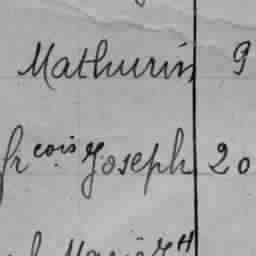 Mathurin 9
fr cois Joseph 20
Marie